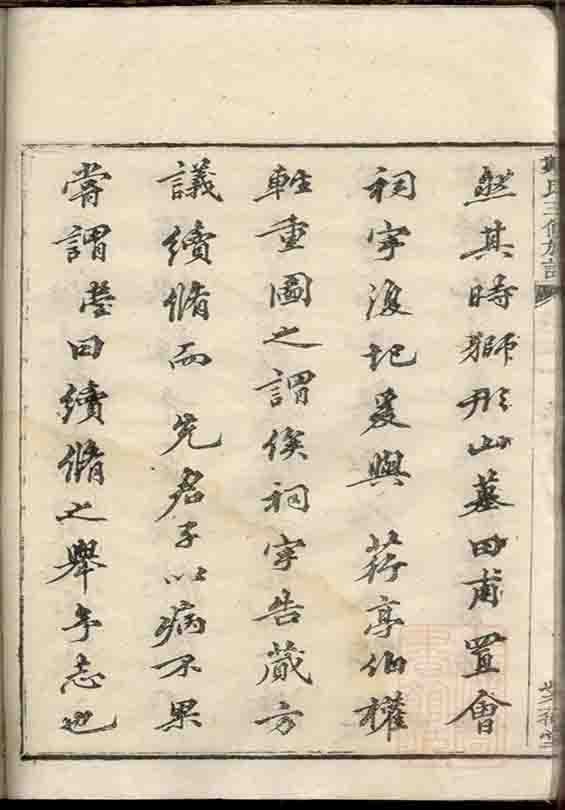 然其時獅形山墓田甫置會
祠宇復圮爰與荇亭伯權
輕重圖之謂俟祠宇告蕆方
議續脩而先君子以病不果
嘗謂瑩曰續脩之舉予志也
氏三修族譜